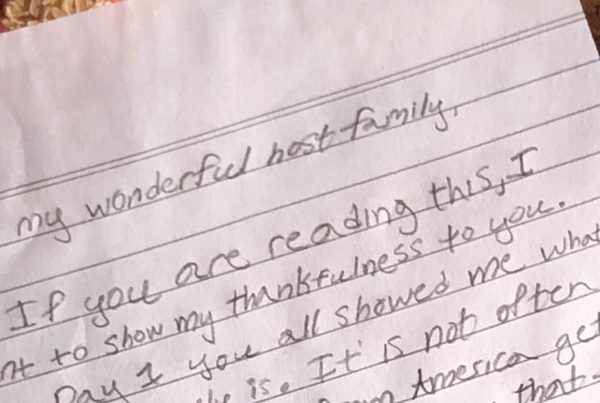 my wonderful host family,
If you are reading this, I
nt to show my thankfulness to you.
Day 1 you all showed me what
is. It is not often
America get
that